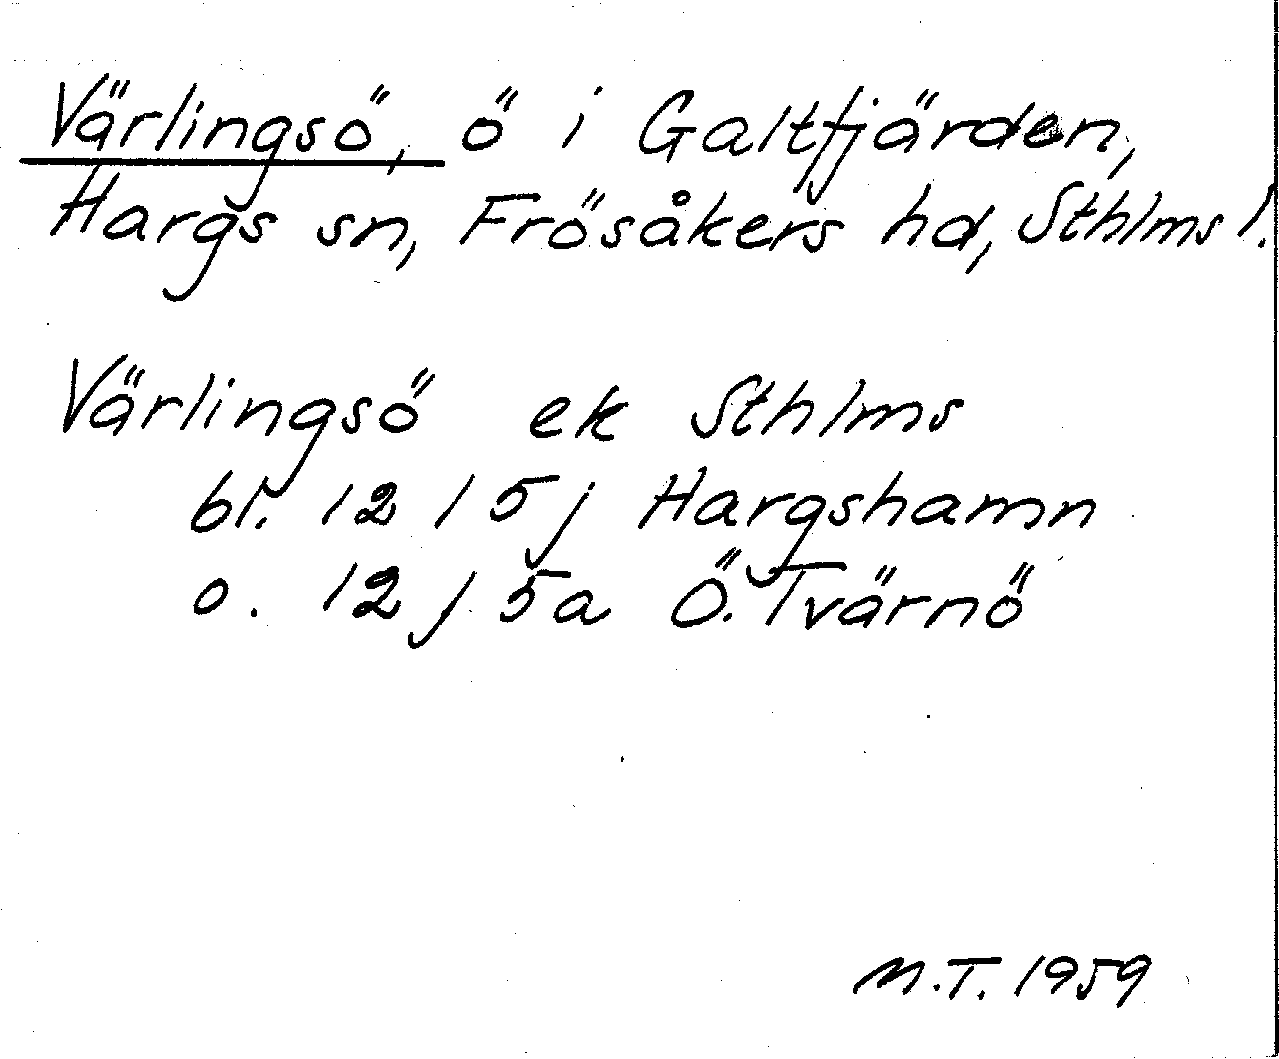 Värlingsö, ö i Galtfjärden,
Hargs sn, Frösåkers hd, Sthlms l.
Värlingsö ek Sthlms
bl. 12 I 5j Hargshamn
o. 12 J 5a Ö. Tvärnö
M.T. 1959